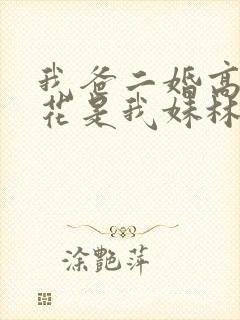 我爸二婚高
花是我妹林
涂艷萍